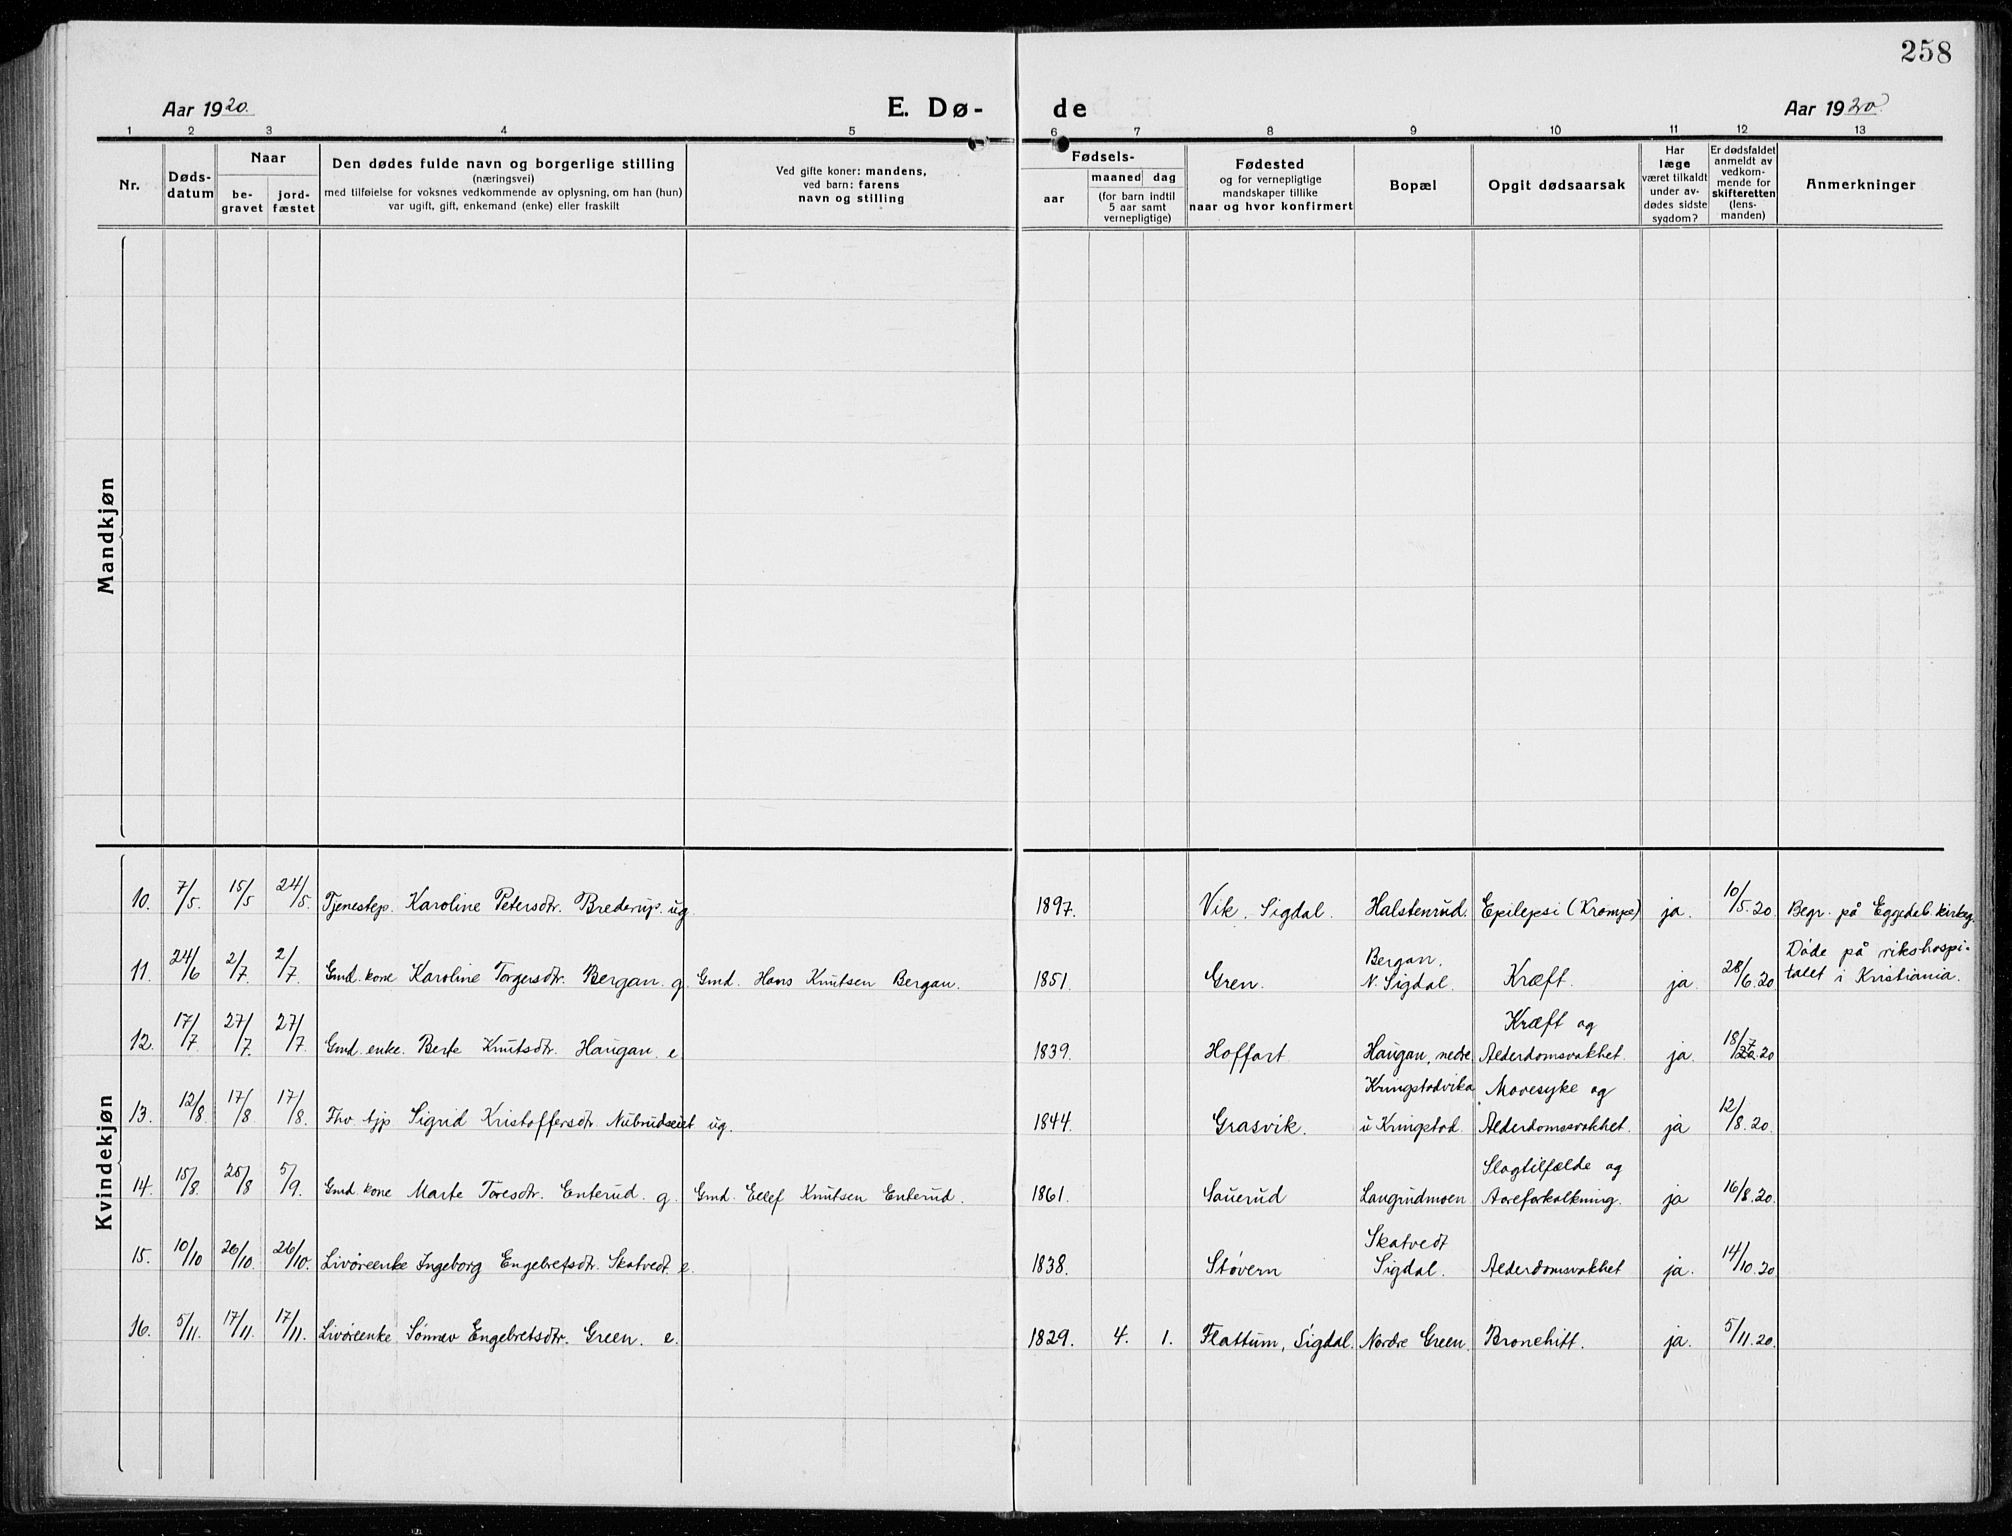 258
Aar 1920.
E. Dø-
de
Aar 1920
1 2 3 4 5 6 7 8 9 10 11 12 13
Nr.
Døds-
datum
Naar
be-
gravet
jord-
fæstet
Den dødes fulde navn og borgerlige stilling
(næringsvei)
med tilføielse for voksnes vedkommende av oplysning, om han (hun)
var ugift, gift, enkemand (enke) eller fraskilt
Ved gifte koner: mandens,
ved barn: farens
navn og stilling
Fødsels-
aar
maaned dag
(for barn indtil
5 aar samt
vernepligtige)
Fødested
og for vernepligtige
mandskaper tillike
naar og hvor konfirmert
Bopæl
Opgit dødsaarsak
Har
læge
været tilkaldt
under av-
dødes sidste
sygdom?
Er dødsfaldet
anmeldt av
vedkom-
mende for
skifteretten
(lens-
manden)
Anmerkninger
Mandkjøn
Kvindekjøn
10. 7/5. 15/5 24/5. Tjenestep. Karoline Petersdtr. Brederup. ug. 1897. Vik, Sigdal. Halstenrud. Epilepsi (Krampe) ja. 10/5.20. Begr. på Eggedal kirkeg.
Bergan, Døde på rikshospi-
11. 24/6 2/7. 2/7. Gmd. kone Karoline Torgersdtr. Bergan. g. Gmd. Hans Knutsen Bergan. 1851. Gren. N. Sigdal. Kræft. ja. 28/6.20 talet i Kristiania.
Kræft og
12. 17/7. 27/7. 27/7. Gmd. enke. Berte Knutsdtr. Haugan. e. 1839. Hoffart Haugan, nedre. Alderdomsvakhet. ja. 18/7.20
Kringstadvika Mavesyke og
13. 12/8. 17/8. 17/8. Fhv. tjp Sigrid Kristoffersdtr. Nubrudseiet ug. 1844. Grasvik. u Kringstad. Alderdomssvakhet. ja 12/8.20.
Slagtilfælde og
14. 15/8. 25/8 5/9. Gmd. kone Marte Toresdtr. Enterud. g. Gmd. Ellef Knutsen Enterud. 1861. Sauerud Laugrudmoen Aareforkalkning. ja 16/8.20.
Skatvedt
15. 10/10 26/10. 26/10. Livøreenke Ingeborg Engebretsdtr. Skatvedt. e. 1838. Støvern Sigdal. Alderdomsvakhet ja. 14/10.20
16. 5/11. 17/11. 17/11. Livøreenke Sønnev Engebretsdtr. Green. e. 1829. 4. 1. Flattum, Sigdal. Nordre Green. Bronchitt. ja. 5/11.20.